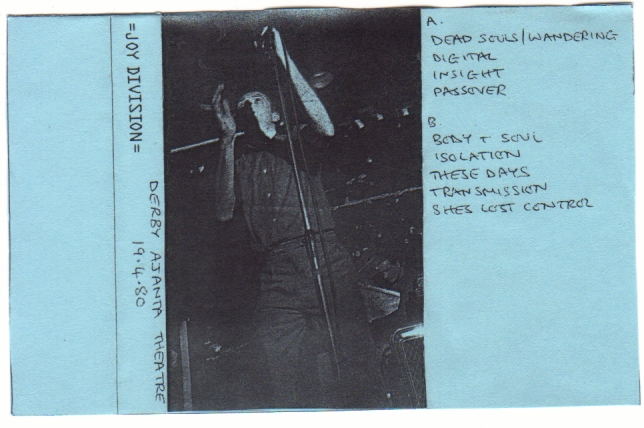 =JOY DIVISION=
DERBY AJANTA THEATRE
19.4.80
A.
DEAD SOULS/WANDERING
DIGITAL
INSIGHT
PASSOVER
B.
BODY + SOUL
ISOLATION
THESE DAYS
TRANSMISSION
SHES LOST CONTROL